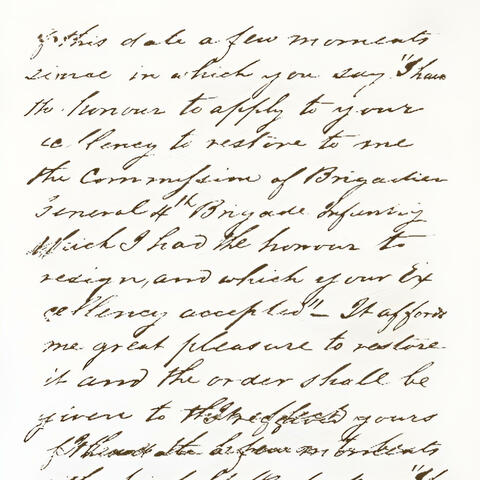 this date a few moments
since in which you say "I have
the honour to apply to your
cellency to restore to me
the Commission of Brigadier
General 4th Brigade Infantry
which I had the honour to
resign, and which your Ex
cellency accepted" – It affords
me great pleasure to restore
it and the order shall be
given to yours